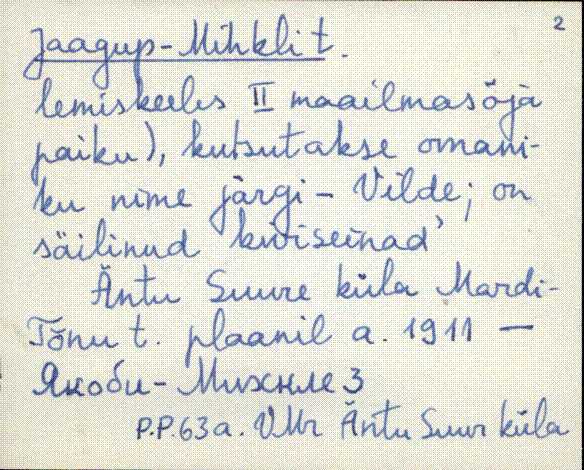 2
Jaagup-Mihkli t.
lemiskeeles II maailmasõja
paiku), kutsutakse omani-
ku nime järgi - Vilde; on
säilinud kiviseinad’
Äntu Suure küla Mardi-
Tõnu t. plaanil a. 1911 —
Якоби-Михкле 3
P.P.63a. VMr Äntu Suur küla